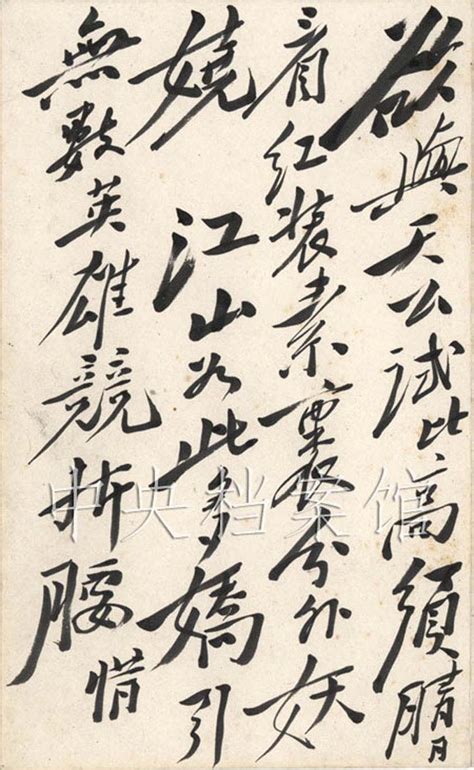 欲與天公試比高須晴日
看紅裝素裹分外妖
嬈 江山如此多嬌引
無數英雄競折腰惜
中央档案馆